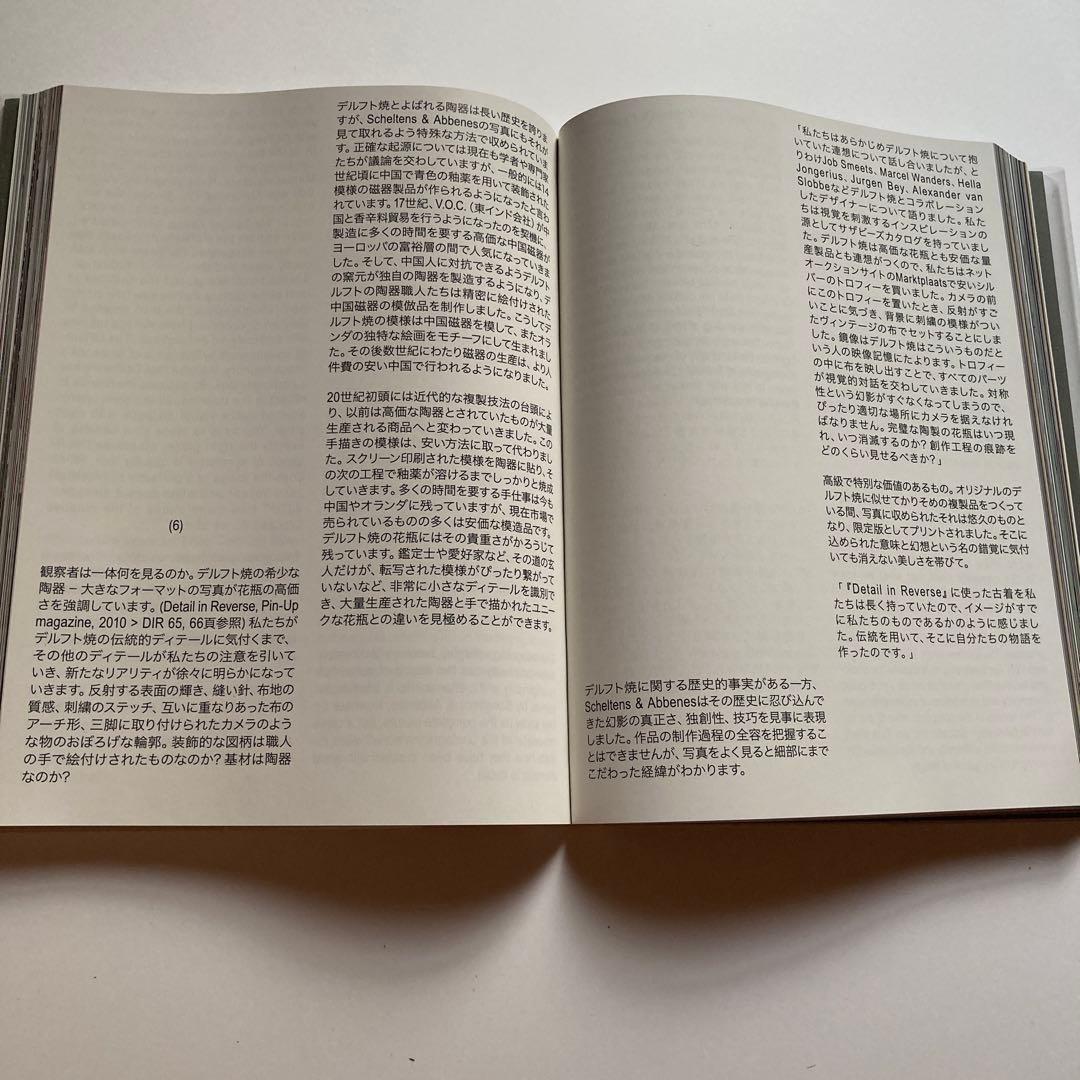 (6)
観察者は一体何を見るのか。デルフト焼の希少な
陶器 – 大きなフォーマットの写真が花瓶の高価
さを強調しています。(Detail in Reverse, Pin-Up
magazine, 2010 > DIR 65, 66頁参照) 私たちが
デルフト焼の伝統的ディテールに気付くまで、
その他のディテールが私たちの注意を引いて
いき、新たなリアリティが徐々に明らかになって
いきます。反射する表面の輝き、縫い針、布地の
質感、刺繍のステッチ、互いに重なりあった布の
アーチ形、三脚に取り付けられたカメラのよう
な物のおぼろげな輪郭。装飾的な図柄は職人
の手で絵付けされたものなのか? 基材は陶器
なのか?
デルフト焼とよばれる陶器は長い歴史を誇りま
すが、Scheltens & Abbenesの写真にもそれが
見て取れるよう特殊な方法で収められていま
す。正確な起源については現在も学者や専門家
たちが議論を交わしていますが、一般的には14
世紀頃に中国で青色の釉薬を用いて装飾された
模様の磁器製品が作られるようになったと言わ
れています。17世紀、V.O.C.（東インド会社）が中
国と香辛料貿易を行うようになったのを契機に、
製造に多くの時間を要する高価な中国磁器が
ヨーロッパの富裕層の間で人気になっていきま
した。そして、中国人に対抗できるようデルフト
の窯元が独自の陶器を製造するようになり、デ
ルフトの陶器職人たちは精密に絵付けされた
中国磁器の模倣品を制作しました。こうしてデ
ルフト焼の模様は中国磁器を模して、またオラ
ンダの独特な絵画をモチーフにして生まれまし
た。その後数世紀にわたり磁器の生産は、より人
件費の安い中国で行われるようになりました。
20世紀初頭には近代的な複製技法の台頭によ
り、以前は高価な陶器とされていたものが大量
生産される商品へと変わっていきました。この
手描きの模様は、安い方法に取って代わりまし
た。スクリーン印刷された模様を陶器に貼り、そ
の次の工程で釉薬が溶けるまでしっかりと焼成
していきます。多くの時間を要する手仕事は今も
中国やオランダに残っていますが、現在市場で
売られているものの多くは安価な模造品です。
デルフト焼の花瓶にはその貴重さがかろうじて
残っています。鑑定士や愛好家など、その道の玄
人だけが、転写された模様がぴったり繋がって
いないなど、非常に小さなディテールを識別で
き、大量生産された陶器と手で描かれたユニー
クな花瓶との違いを見極めることができます。
デルフト焼に関する歴史的事実がある一方、
Scheltens & Abbenesはその歴史に忍び込んで
きた幻影の真正さ、独創性、技巧を見事に表現
しました。作品の制作過程の全容を把握するこ
とはできませんが、写真をよく見ると細部にまで
こだわった経緯がわかります。
「私たちはあらかじめデルフト焼について抱
いていた連想について話し合いましたが、と
りわけJob Smeets, Marcel Wanders, Hella
Jongerius, Jurgen Bey, Alexander van
Slobbeなどデルフト焼とコラボレーション
したデザイナーについて語りました。私た
ちは視覚を刺激するインスピレーションの
源としてサザビーズカタログを持っていまし
た。デルフト焼は高価な花瓶とも安価な量
産製品とも連想がつくので、私たちはネット
オークションサイトのMarktplaatsで安いシル
バーのトロフィーを買いました。カメラの前
にこのトロフィーを置いたとき、反射がすご
いことに気づき、背景に刺繍の模様がつい
たヴィンテージの布でセットすることにしま
した。鏡像はデルフト焼はこういうものだと
いう人の映像記憶にたよります。トロフィー
の中に布を映し出すことで、すべてのパーツ
が視覚的対話を交わしていきました。対称
性という幻影がすぐなくなってしまうので、
ぴったり適切な場所にカメラを据えなけれ
ばなりません。完璧な陶製の花瓶はいつ現
れ、いつ消滅するのか? 創作工程の痕跡を
どのくらい見せるべきか?」
高級で特別な価値のあるもの。オリジナルのデ
ルフト焼に似せてかりそめの複製品をつくって
いる間、写真に収められたそれは悠久のものと
なり、限定版としてプリントされました。そこに
込められた意味と幻想という名の錯覚に気付
いても消えない美しさを帯びて。
「『Detail in Reverse』に使った古着を私
たちは長く持っていたので、イメージがすで
に私たちのものであるかのように感じまし
た。伝統を用いて、そこに自分たちの物語を
作ったのです。」